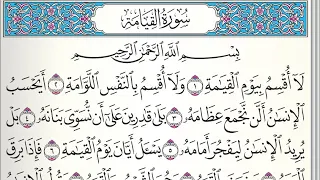 سُورَةُ الْقِيَامَةِ
بِسْمِ اللَّهِ الرَّحْمَٰنِ الرَّحِيمِ
لَا أُقْسِمُ بِيَوْمِ الْقِيَامَةِ ١ وَلَا أُقْسِمُ بِالنَّفْسِ اللَّوَّامَةِ ٢ أَيَحْسَبُ
الْإِنسَانُ أَلَّن نَّجْمَعَ عِظَامَهُ ٣ بَلَىٰ قَادِرِينَ عَلَىٰ أَن نُّسَوِّيَ بَنَانَهُ ٤ بَلْ
يُرِيدُ الْإِنسَانُ لِيَفْجُرَ أَمَامَهُ ٥ يَسْأَلُ أَيَّانَ يَوْمُ الْقِيَامَةِ ٦ فَإِذَا بَرِقَ